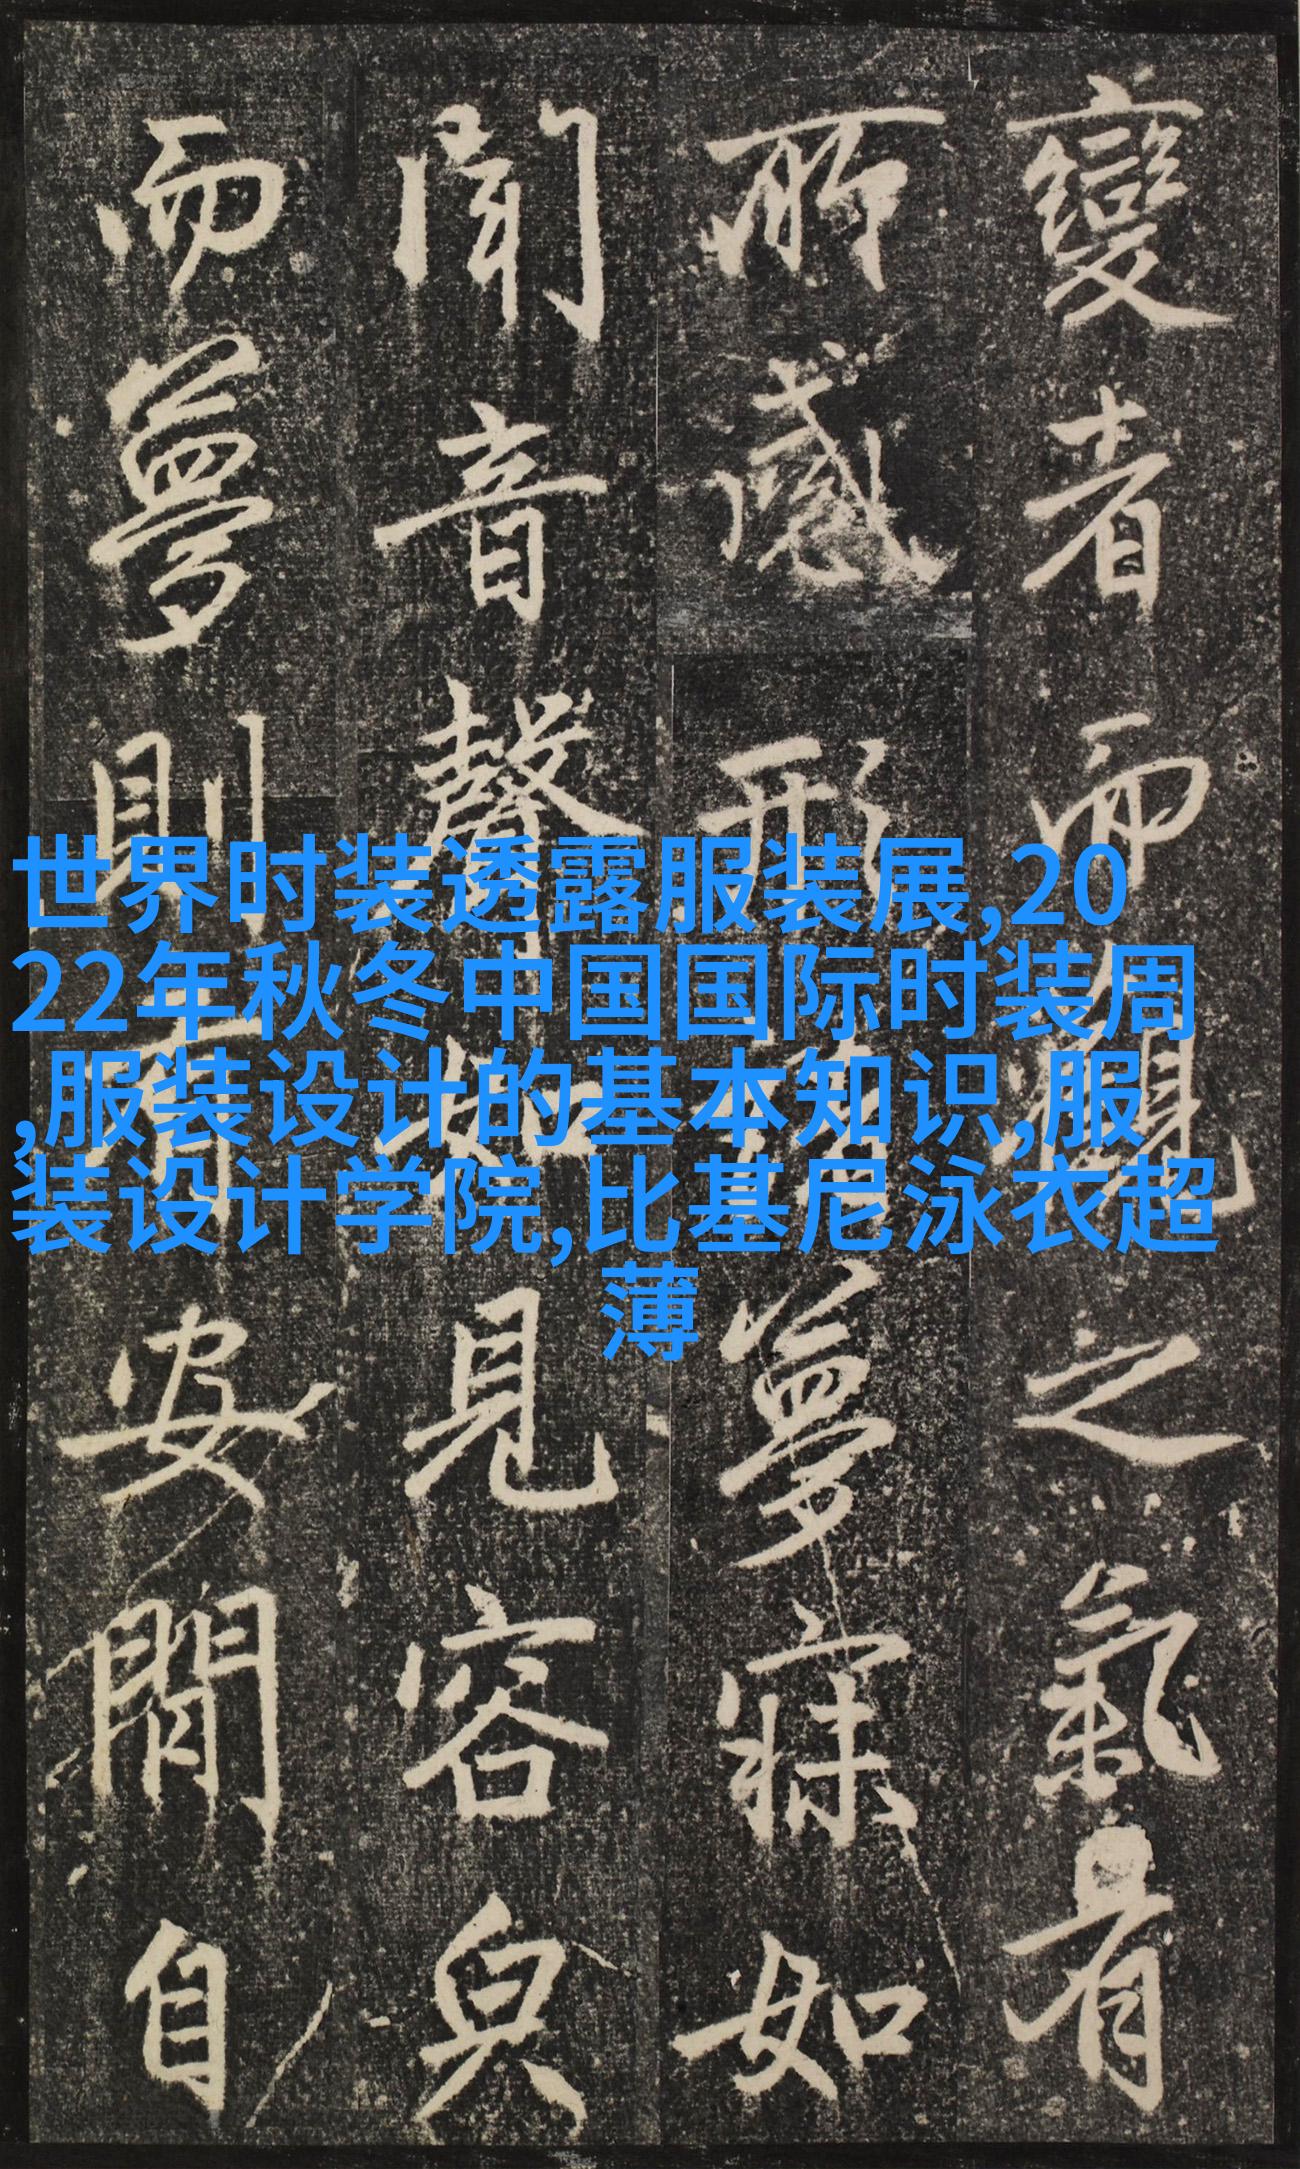 世界时装透露服装展,20
22年秋冬中国国际时装周
,服装设计的基本知识,服
装设计学院,比基尼泳衣超
薄
變者而觀之氣有
所感形夢寐如
聞音聲如見容皃
而夢則有安閒自